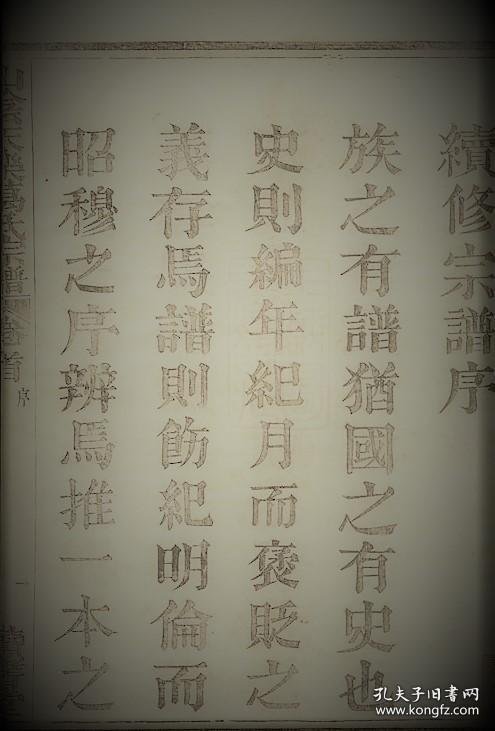 續修宗譜序
族之有譜猶國之有史也
史則編年紀月而褒貶之
義存焉譜則飭紀明倫而
昭穆之序辨焉推一本之
山陰天樂葛氏宗譜 卷首
序
一
孔夫子旧书网
www.kongfz.com